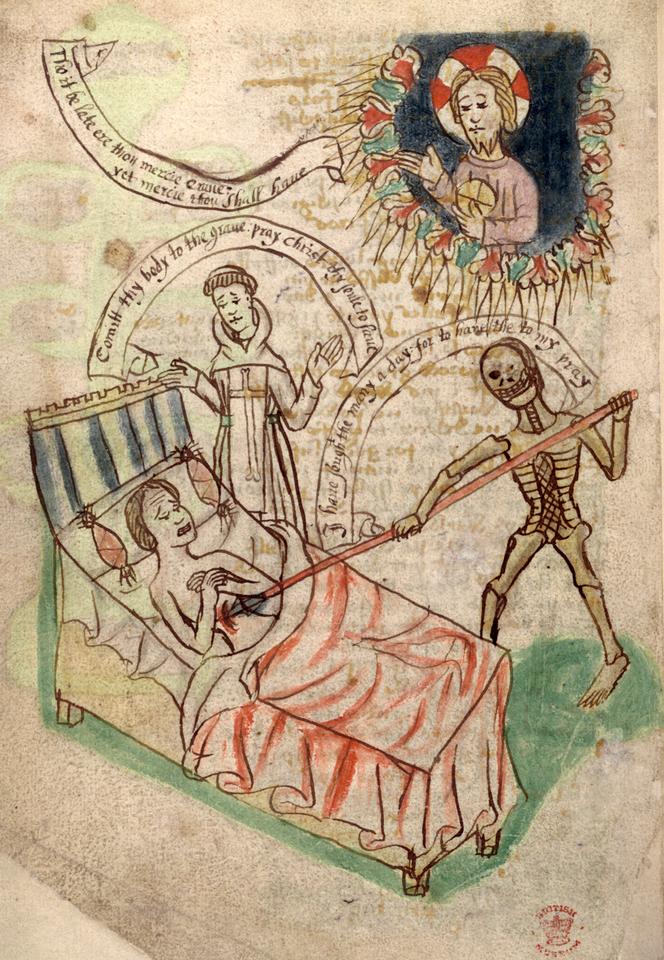 Tho it be late ere thou mercie craue:
yet mercie thou shall haue
Comitt thy body to the graue. pray christ thy soule to saue
I haue sought the many a day. for to haue the to my pray
BRITISH
MUSEUM